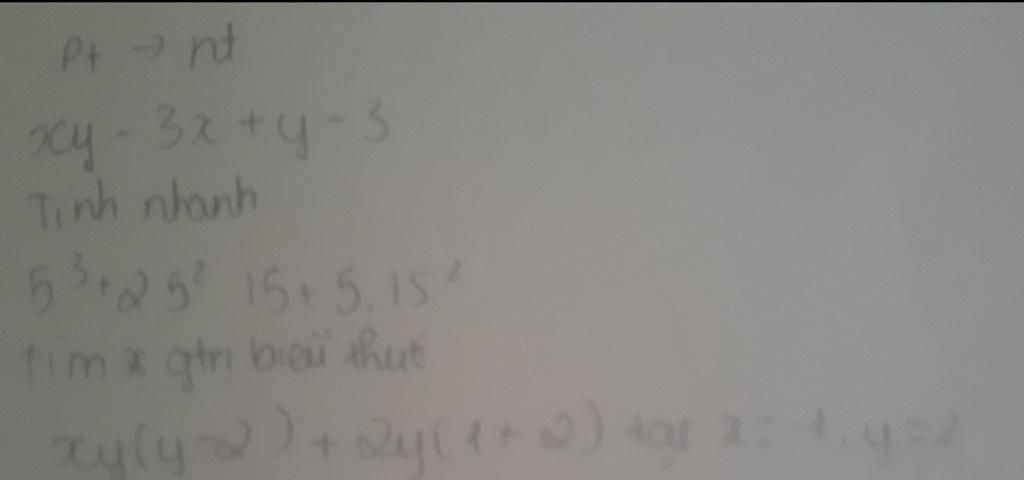 Pt → nt
xy - 3x + y - 3
Tính nhanh
5³ + 2 5² 15 + 5.15²
tìm x gtrị biểu thức
xy(y-2) + 2y(1+2) tại x = -1, y = 2